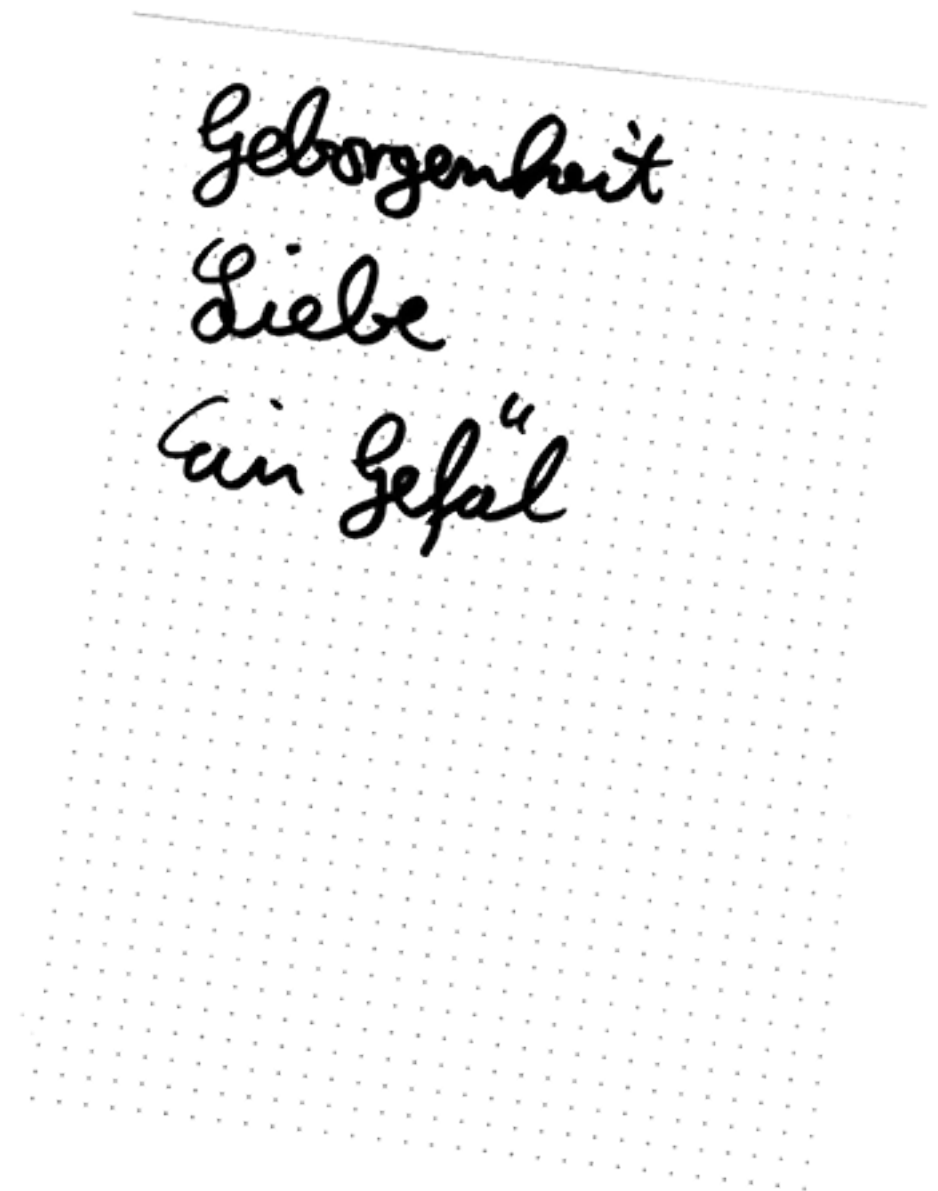 Geborgenheit
Liebe
Ein Gefäl